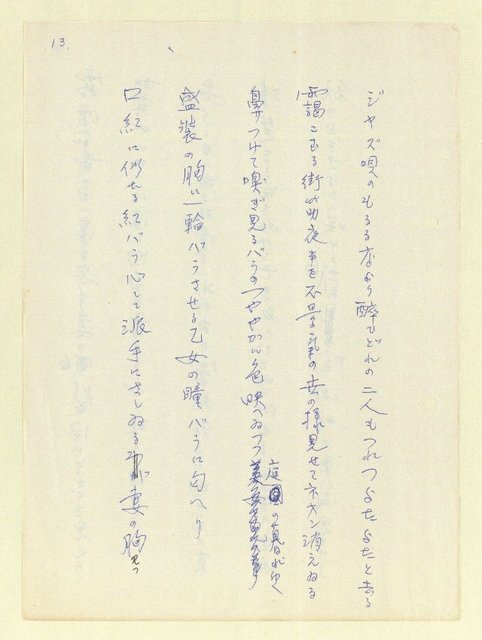 13.
ジャズ唄のもるる店より酔ひどれの二人もつれつよたよたと去る
靄こむる街の夜を不景気の世の様見せてネオン消えゐる
鼻つけて嗅ぎ見るバラのつややかに色映へゐつつ庭の暮れゆく
盛装の胸に一輪バラさせる乙女の瞳バラに匂へり
口紅に似せる紅バラ心して派手にさしゐる妻の胸見つ